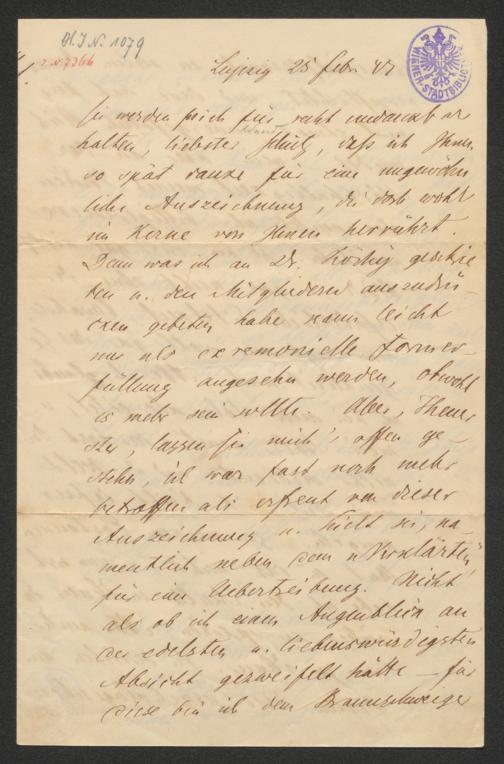 H.I.N. 1079
Z.N. 7366
WIENER-STADTBIBLIOTHEK
Leipzig 25 Febr. 47
Sie werden mich für recht undankbar
halten, liebster Schulz, daß ich Ihnen
so spät danke für eine ungewöhn
liche Auszeichnung, die doch wohl
im Kerne von Ihnen herrührt.
Denn was ich an Dr. Köchy geschrie
ben u. den Mitgliedern auszudrü-
cken gebeten habe kann leicht
nur als ceremonielle Former-
füllung angesehn werden, obwohl
es mehr sein sollte. Aber, Theuer
ster, lassen Sie mich's offen ge-
stehn, ich war fast noch mehr
betroffen als erfreut von dieser
Auszeichnung u. hielt sie, na-
mentlich neben dem "Verklärten"
für eine Uebertreibung. Nicht
als ob ich einen Augenblick an
der edelsten u. liebenswürdigsten
Absicht gezweifelt hätte – für
diese bin ich dem Braunschweiger